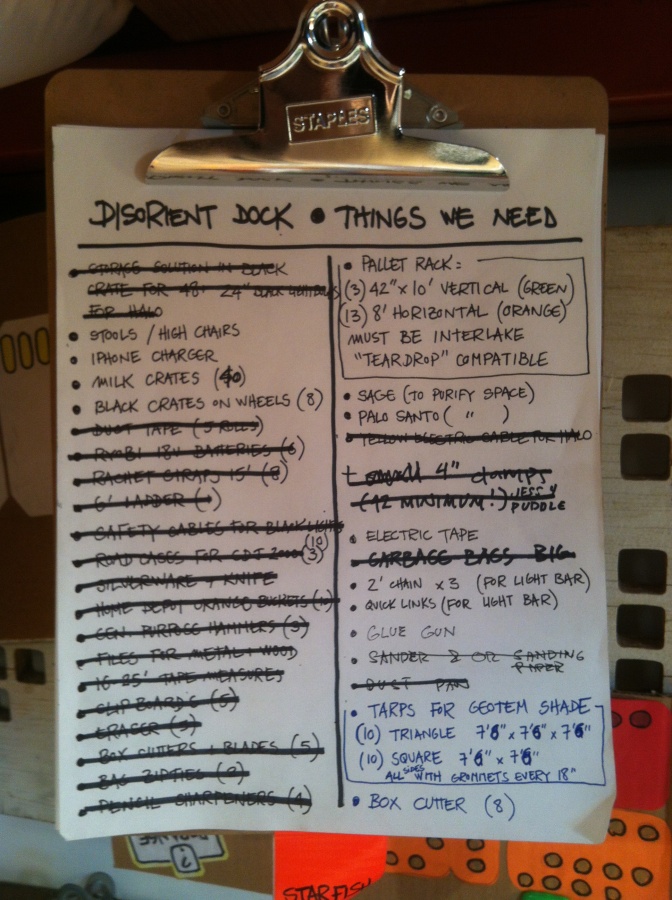 STAPLES
DISORIENT DOCK • THINGS WE NEED
• STORAGE SOLUTION IN BLACK
CRATE FOR 48+ 24" BLACK LIGHT
FOR HALO
• STOOLS / HIGH CHAIRS
• IPHONE CHARGER
• MILK CRATES (40)
• BLACK CRATES ON WHEELS (8)
• DUCT TAPE (5 ROLLS)
• RYOBI 18V BATTERIES (6)
• RACHET STRAPS 15' (8)
• 6' LADDER (1)
• SAFETY CABLES FOR BLACK LIGHTS
(10)
• ROAD CASES FOR CDJ 2000 (3)
• SILVERWARE + KNIFE
• HOME DEPOT ORANGE BUCKETS (10)
• GEN PURPOSE HAMMERS (3)
• FILES FOR METAL + WOOD
• 16-25' TAPE MEASURES
• CLIP BOARDS (5)
• ERASER (3)
• BOX CUTTERS + BLADES (5)
• BAG ZIPTIES (2)
• PENCIL SHARPENERS (4)
• PALLET RACK:
(3) 42" x 10' VERTICAL (GREEN)
(13) 8' HORIZONTAL (ORANGE)
MUST BE INTERLAKE
"TEARDROP" COMPATIBLE
• SAGE (TO PURIFY SPACE)
• PALO SANTO ( " )
• YELLOW ELECTRIC CABLE FOR HALO
small 4" clamps
(42 MINIMUM!) JESS Y
PUDDLE
• ELECTRIC TAPE
• GARBAGE BAGS BIG
• 2' CHAIN x 3 (FOR LIGHT BAR)
• QUICK LINKS (FOR LIGHT BAR)
• GLUE GUN
• SANDER 2 OR SANDING
PAPER
• DUST PAN
• TARPS FOR GEOTEM SHADE
(10) TRIANGLE 7'6" x 7'6" x 7'6"
(10) SQUARE 7'6" x 7'6"
ALL SIDES WITH GROMMETS EVERY 18"
• BOX CUTTER (8)
STARFISH